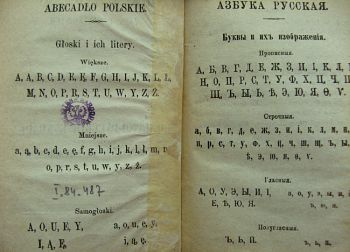 ABECADŁO POLSKIE.
Głoski i ich litery.
Większe.
A, Ą, B, C, D, E, Ę, F, G, H, I, J, K, L, Ł,
M, N, O, P, R, S, T, U, W, Y, Z, Ż.
Mniejsze.
a, ą, b, c, d, e, ę, f, g, h, i, j, k, l, ł, m, n,
o, p, r, s, t, u, w, y, z, ż.
I.84.487
Samogłoski.
A, O, U, E, Y, a, o, u, e, y,
I, Ą, Ę. i, ą, ę.
АЗБУКА РУССКАЯ.
Буквы и ихъ изображенія.
Прописныя.
А, Б, В, Г, Д, Е, Ж, З, И, І, К, Л, М,
Н, О, П, Р, С, Т, У, Ф, Х, Ц, Ч, Ш,
Щ, Ъ, Ы, Ь, Ѣ, Э, Ю, Я, Ѳ, Ѵ.
Строчныя.
а, б, в, г, д, е, ж, з, и, і, к, л, м, н,
о, п, р, с, т, у, ф, х, ц, ч, ш, щ, ъ, ы, ь,
ѣ, э, ю, я, ѳ, ѵ.
Гласныя.
А, О, У, Э, Ы, И, І,
Е, Ѣ, Ю, Я.
Полугласныя.
Ъ, Ь, Й. ъ, ь, й.